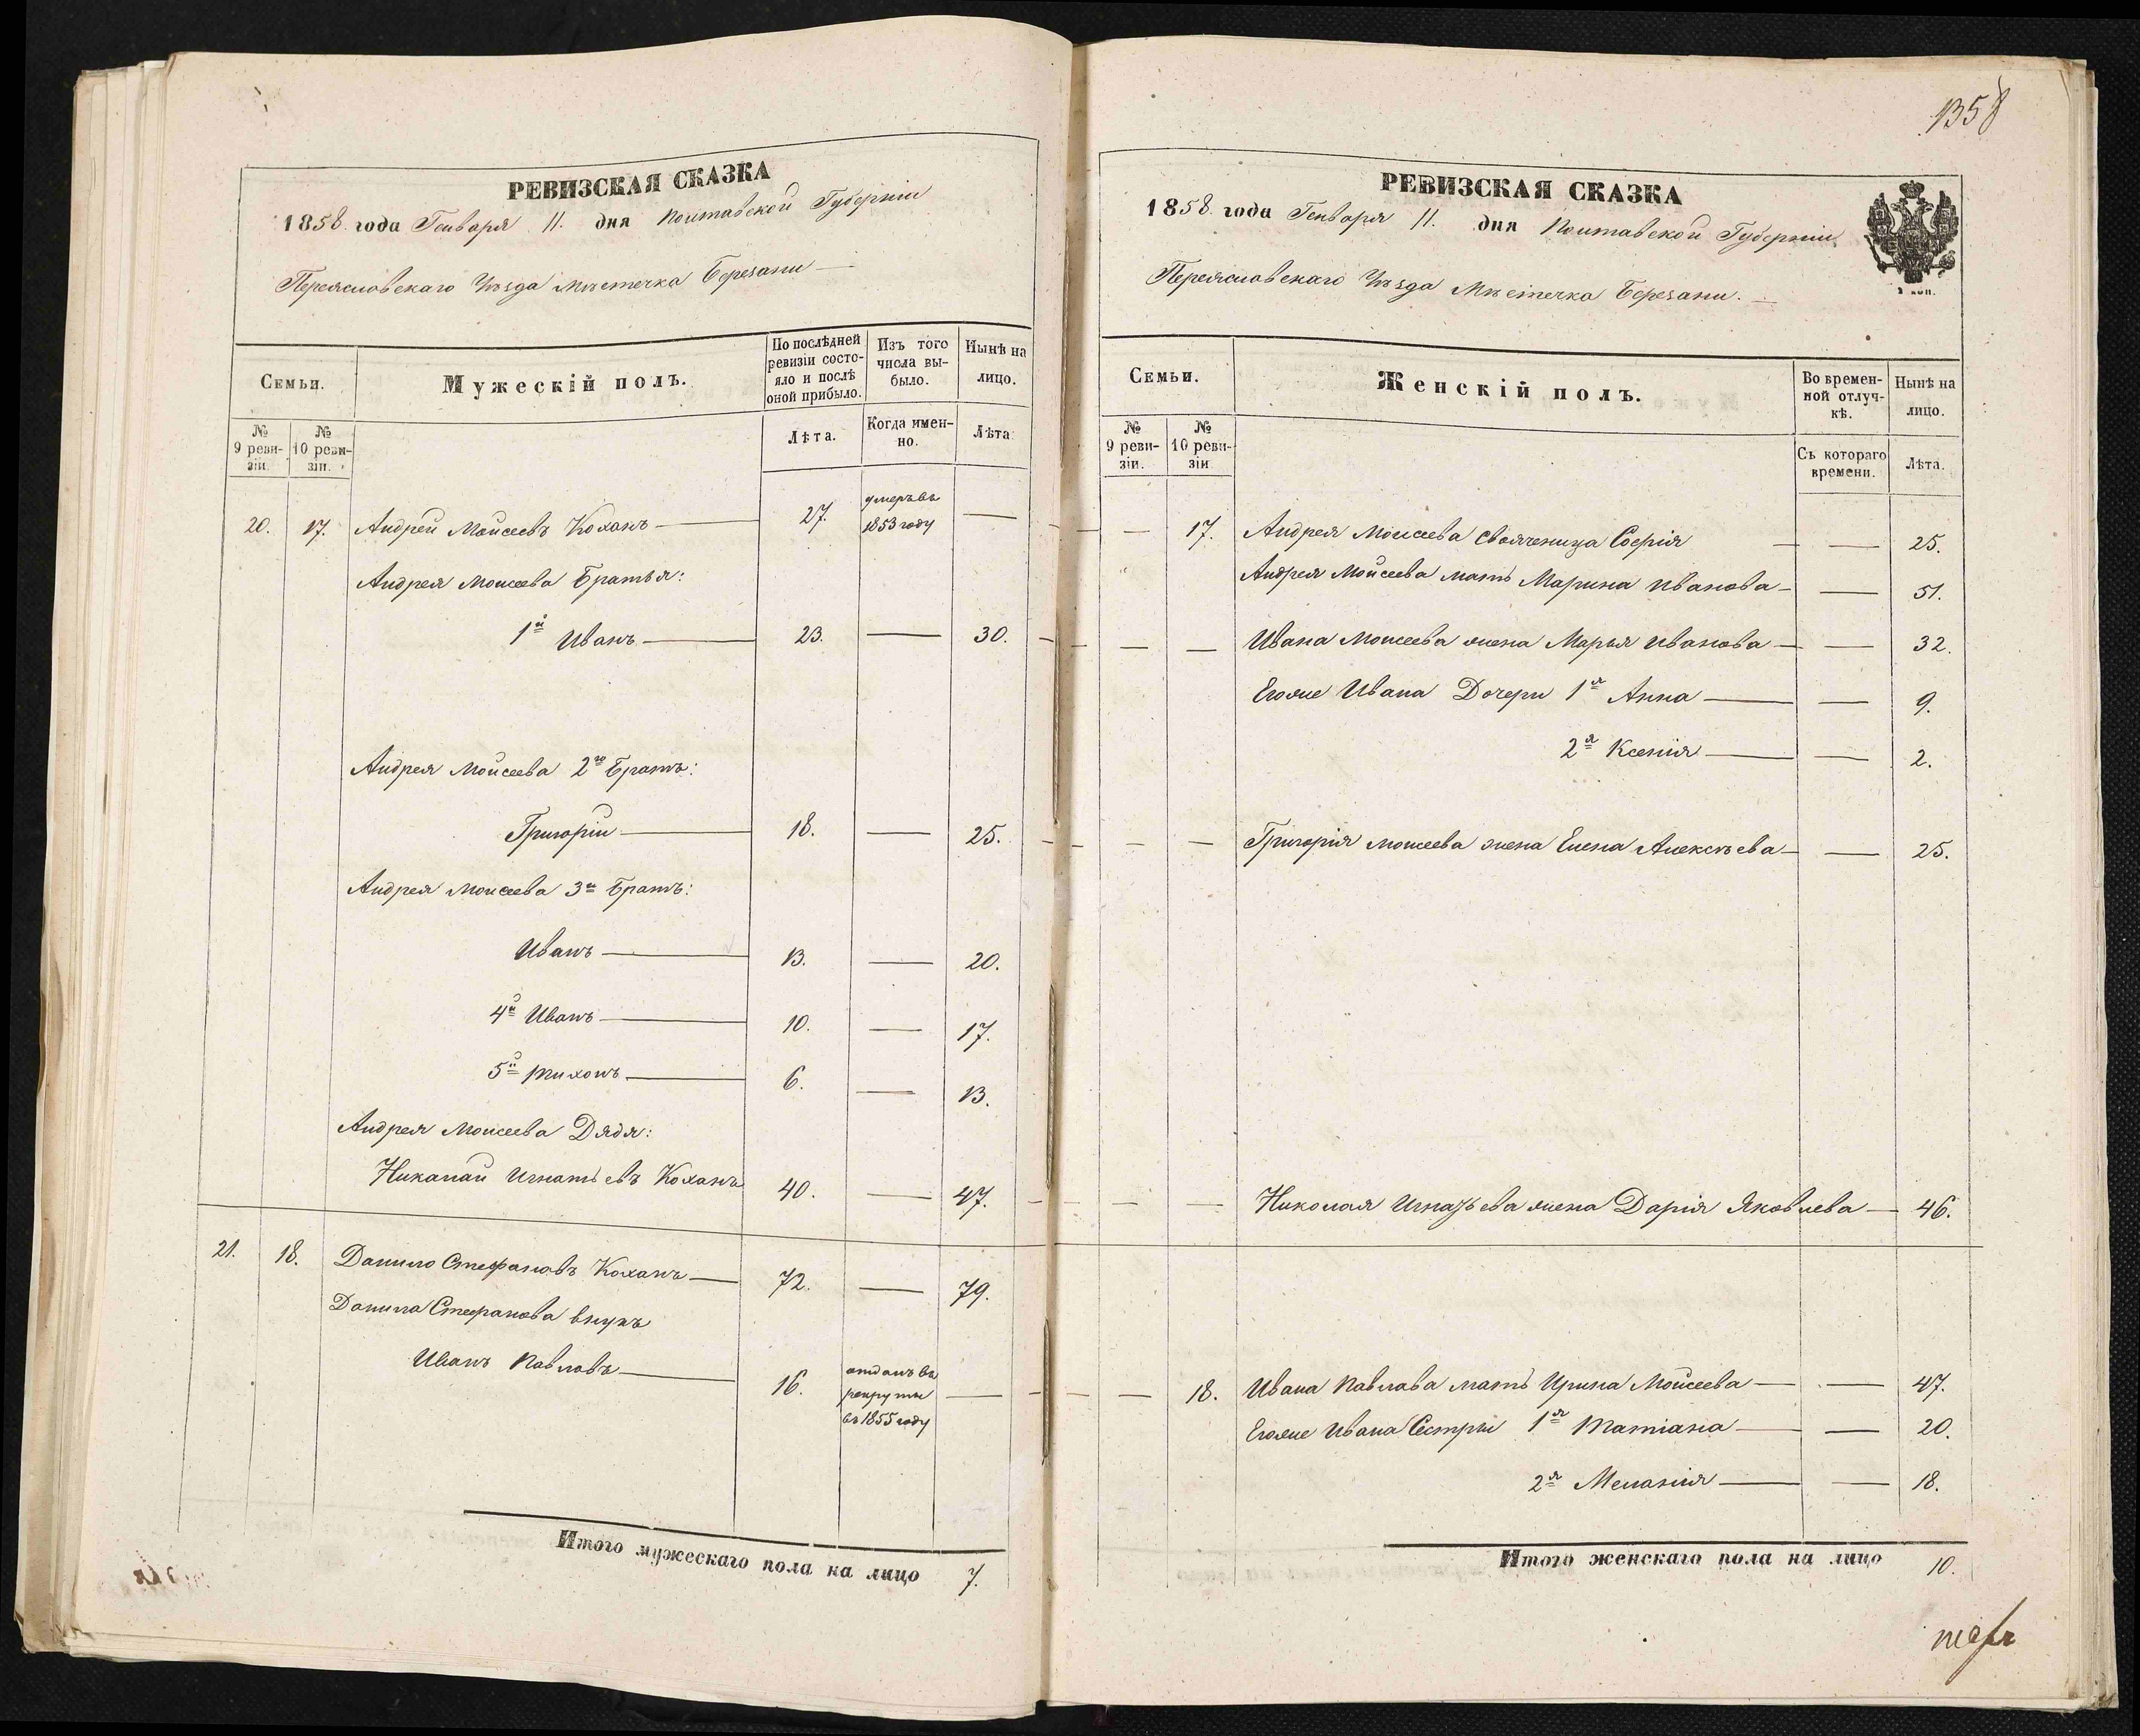 РЕВИЗСКАЯ СКАЗКА
1858 года Генваря 11. дня Полтавской Губерніи
Переясловскаго Уѣзда мѣстечка Березани —
Семьи.
Мужескій полъ.
По послѣдней ревизіи состояло и послѣ оной прибыло.
Изъ того числа выбыло.
Нынѣ на лицо.
№ 9 ревизіи.
№ 10 ревизіи.
Лѣта.
Когда именно.
Лѣта.
20. 17. Андрей Мойсеевъ Коханъ — 27. умеръ въ 1853 году —
Андрея Моисеева Братья:
1й Иванъ — 23. — 30.
Андрея Мойсеева 2й Братъ:
Григорій — 18. — 25.
Андрея Моисеева 3й Братъ:
Иванъ — 13. — 20.
4й Иванъ — 10. — 17.
5й Тихонъ — 6. — 13.
Андрея Моисеева Дядя:
Николай Игнатьевъ Коханъ 40. — 47.
21. 18. Данило Стефановъ Коханъ — 72. — 79.
Данила Стефанова внукъ
Иванъ Павловъ — 16. отданъ въ рекруты въ 1855 году —
Итого мужескаго пола на лицо 7.
1358
РЕВИЗСКАЯ СКАЗКА
1858 года Генваря 11. дня Полтавской Губерніи
Переясловскаго Уѣзда Мѣстечка Березани. —
коп.
Семьи.
Женскій полъ.
Во временной отлучкѣ.
Нынѣ на лицо.
№ 9 ревизіи.
№ 10 ревизіи
Съ котораго времени.
Лѣта.
— 17. Андрея Моисеева свояченица Софія — — 25.
Андрея Мойсеева мать Марина Иванова — — 51.
— — Ивана Моисеева жена Марья Иванова — — 32.
Егоже Ивана Дочери 1я Анна — — 9.
2я Ксенія — — 2.
— — Григорія Моисеева жена Елена Алексѣева — — 25.
— — Николая Игнатьева жена Дарія Яковлева — 46.
— 18. Ивана Павлова мать Ирина Мойсеева — — 47.
Егоже Ивана Сестры 1я Татіана — — 20.
2я Меланія — — 18.
Итого женскаго пола на лицо 10.